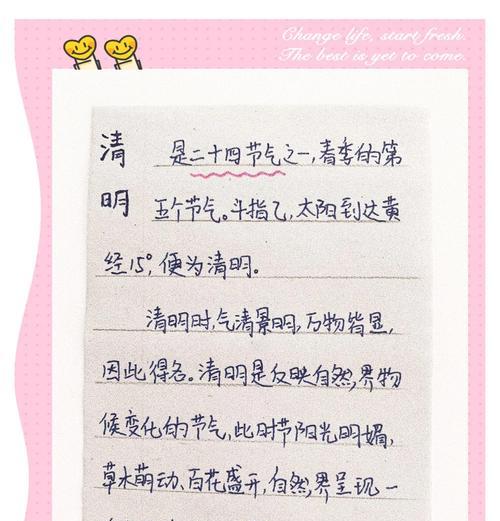 Change life, start fresh.
The best is yet to come.
清明
是二十四节气之一,春季的第
五个节气。斗指乙,太阳到达黄
经15°,便为清明。
清明时,气清景明,万物皆显,
因此得名。清明是反映自然界物
候变化的节气,此时节阳光明媚,
草木萌动、百花盛开,自然界呈现一